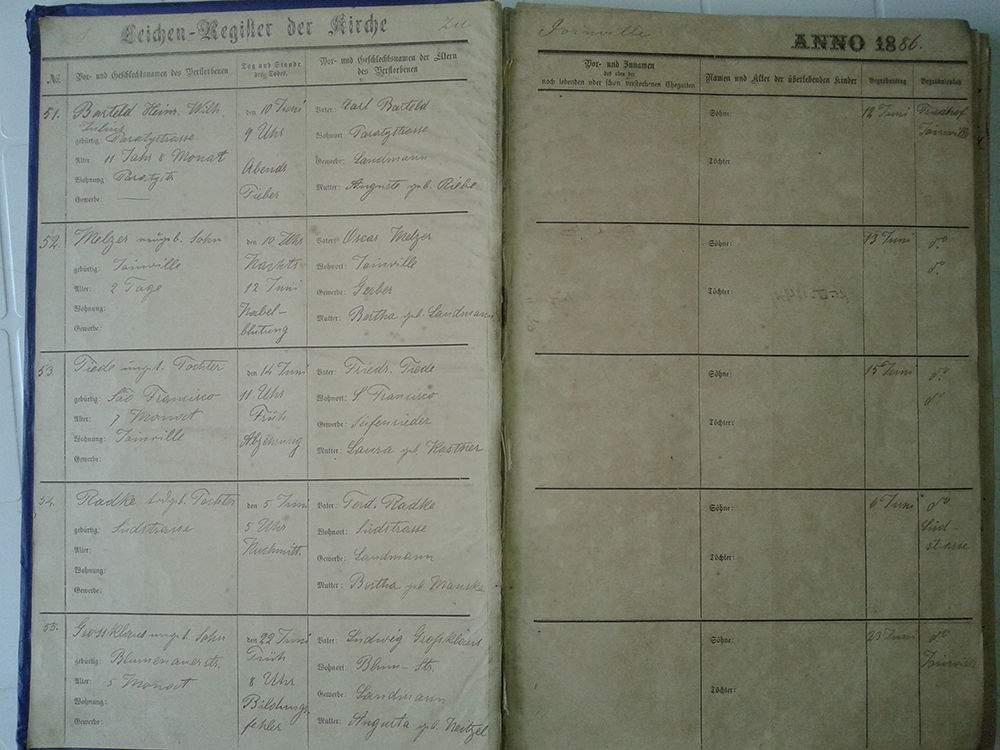 Leichen-Register der Kirche Zu Joinville ANNO 1886.
No. Vor- und Geschlechtsnamen des Verstorbenen
Tag und Stunde des Todes.
Vor- und Geschlechtsnamen der Eltern des Verstorbenen
Vor- und Zunamen des oder der noch lebenden oder schon verstorbenen Ehegatten
Namen und Alter der überlebenden Kinder
Begräbnisstag
Begräbnissplatz
51. Barteld Heinr. Wilh.
Julius
gebürtig: Paratystrasse
Alter 11 Jahr 8 Monat
Wohnung: Paratystr
Gewerbe: —
den 10 Juni
9 Uhr
Abends
Fieber
Vater: Carl Barteld
Wohnort Paratystrasse
Gewerbe: Landmann
Mutter: Auguste geb. Riebe
Söhne:
Töchter
12 Juni
Friedhof
Joinville
52. Melzer ungeb. Sohn
gebürtig: Joinville
Alter: 2 Tage
Wohnung:
Gewerbe:
den 10 Uhr
Nachts
12 Juni
Nabel-
blutung
Vater: Oscar Melzer
Wohnort: Joinville
Gewerbe: Gerber
Mutter: Bertha geb. Landmann
Söhne:
Töchter:
13 Juni
do
do.
53. Tiede ungt. Tochter
gebürtig: São Francisco
Alter: 7 Monat
Wohnung: Joinville
Gewerbe:
den 14 Juni
11 Uhr
Früh
Abzehrung
Vater: Friedr. Tiede
Wohnort: S Francisco
Gewerbe: Seifensieder
Mutter: Laura geb. Kastner
Söhne:
Töchter:
15 Juni
do.
do
54. Radke todgb. Tochter
gebürtig: Südstrasse
Alter:
Wohnung:
Gewerbe:
den 5 Juni
5 Uhr
Nachmitt.
Vater: Ferd. Radke
Wohnort: Südstrasse
Gewerbe: Landmann
Mutter: Bertha geb. Manske
Söhne:
Töchter:
6 Juni
do
Süd-
strasse
55. Grossklaus ungt. Sohn
gebürtig: Blumenauerstr.
Alter: 5 Monat
Wohnung:
Gewerbe:
den 22 Juni
Früh
8 Uhr
Bildungs-
fehler
Vater: Ludwig Großklaus
Wohnort: Blum-Str.
Gewerbe: Landmann
Mutter: Augusta geb. Neitzel
Söhne:
Töchter:
23 Juni
do
Joinville